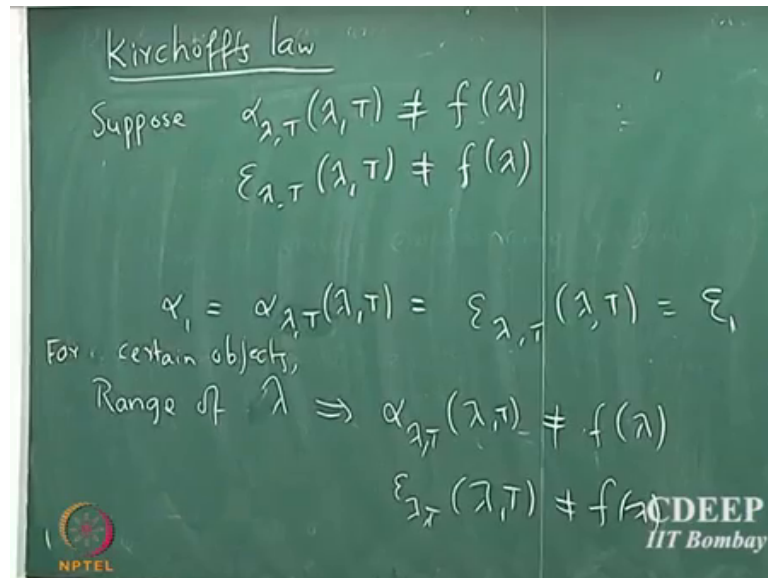 Kirchoffts law
Suppose α_{λ,T}(λ,T) ≠ f(λ)
ε_{λ,T}(λ,T) ≠ f(λ)
α₁ = α_{λ,T}(λ,T) = ε_{λ,T}(λ,T) = ε₁
For certain objects,
Range of λ ⇒ α_{λ,T}(λ,T) ≠ f(λ)
ε_{λ,T}(λ,T) ≠ f(λ)
NPTEL
CDEEP
IIT Bombay